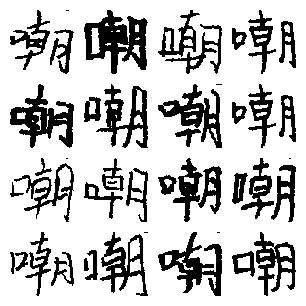 嘲嘲嘲嘲
嘲嘲嘲嘲
嘲嘲嘲嘲
嘲嘲嘲嘲